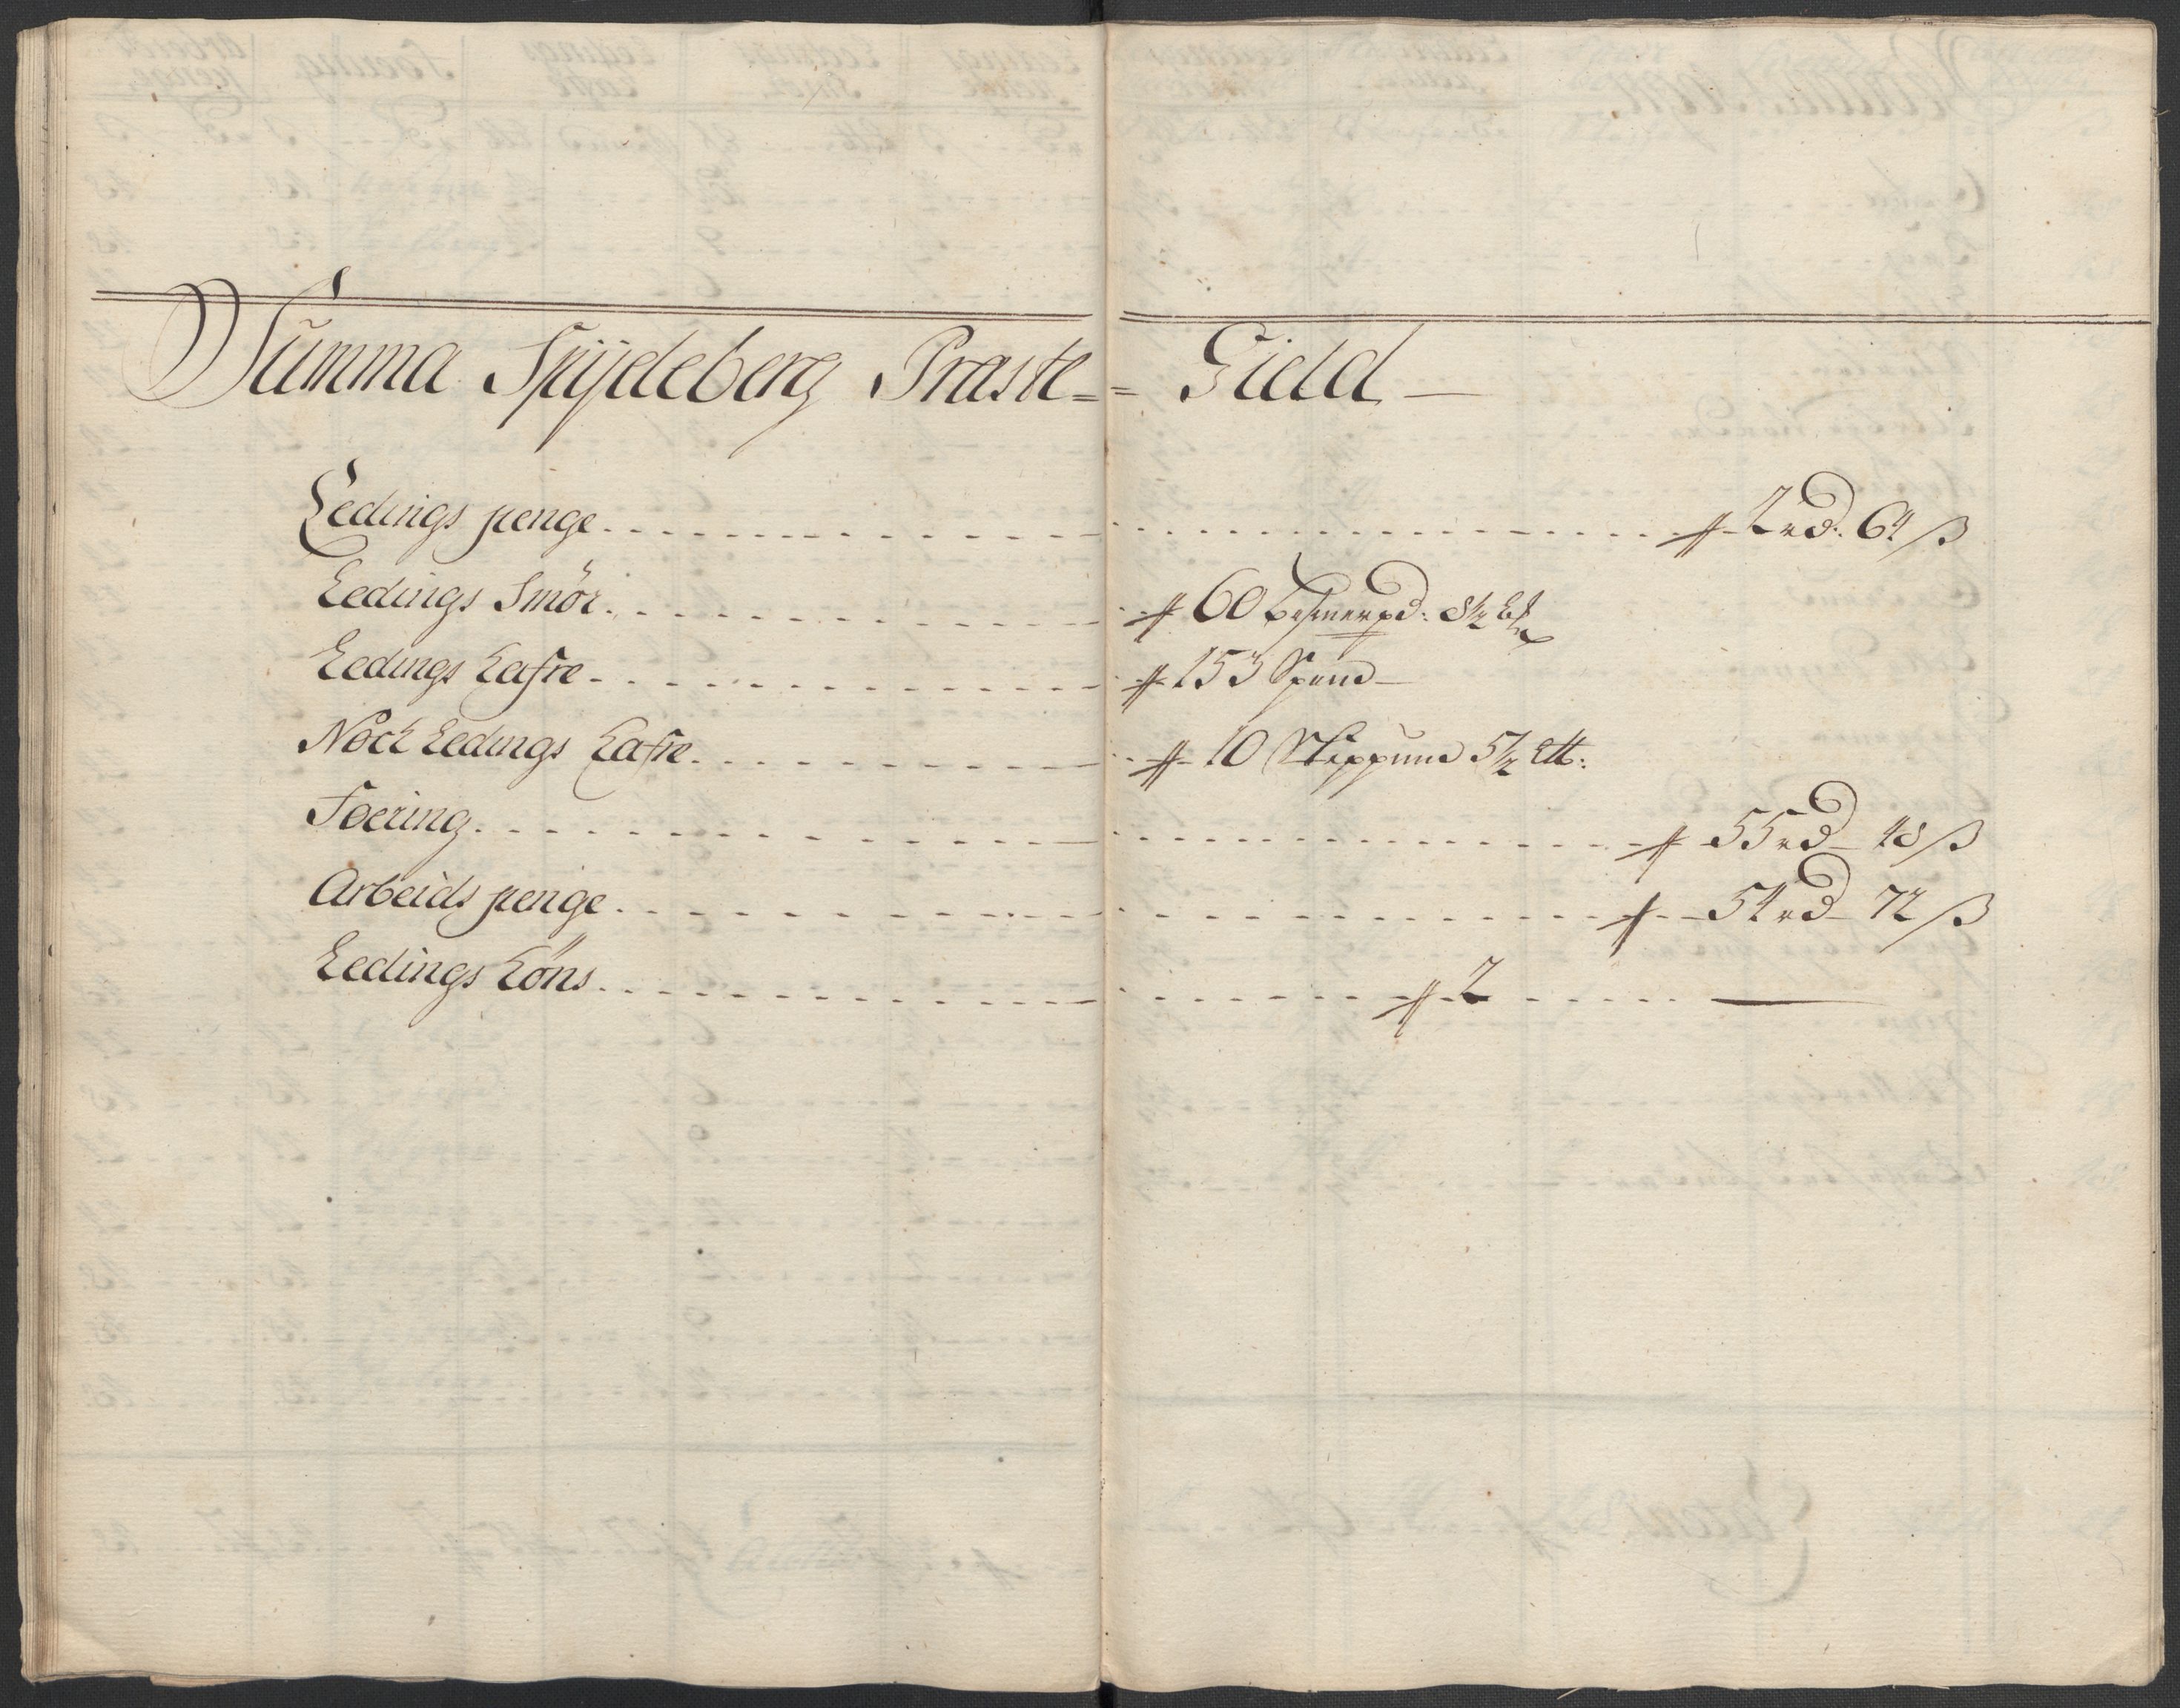 Summa Spydeberg Præste= = Gield —
Ledings penge . . . . . 2 rd: 64 ß
Ledings Smör . . . . . 60 Besmerpd: 8½
Ledings Kafre . . . . . 153 Spand —
Noch Ledings Kafre . . . . . 10 Skippund 5½ L℔:
Foering . . . . . 55 rd — 48 ß
Arbeids penge . . . . . 54 rd — 72 ß
Ledings Höns . . . . . 2 . . . . . —